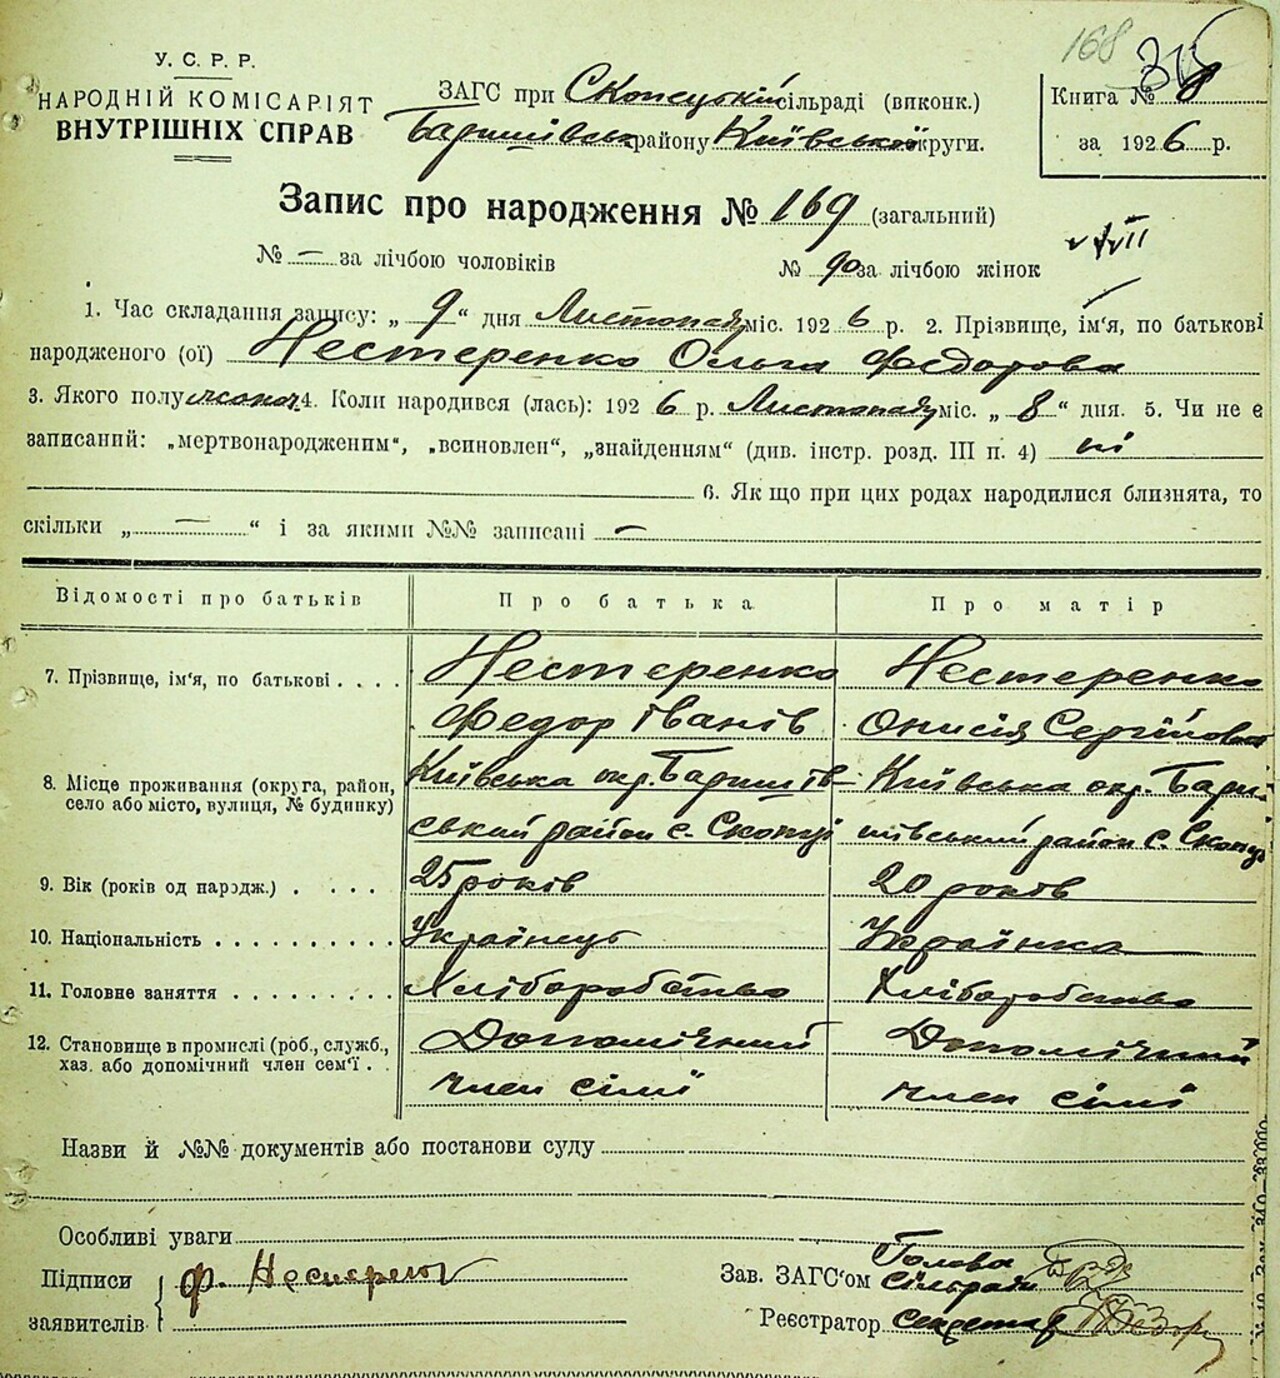 168
315
У. С. Р. Р.
НАРОДНІЙ КОМІСАРІЯТ
ВНУТРІШНІХ СПРАВ
ЗАГС при Скопецькій сільраді (виконк.)
Баришівськ району Київської округи.
Книга № 8
за 1926 р.
Запис про народження № 169 (загальний)
№ — за лічбою чоловіків
№ 90 за лічбою жінок
1. Час складання запису: „ 9 “ дня Листопада міс. 1926 р. 2. Прізвище, ім'я, по батькові
народженого (ої) Нестеренко Ольга Федорова
3. Якого полу жоноч. 4. Коли народився (лась): 1926 р. Листопада міс. „ 8 “ дня. 5. Чи не є
записаний: „мертвонародженим“, „всиновлен“, „знайденням“ (див. інстр. розд. III п. 4) ні
6. Якщо при цих родах народилися близнята, то
скільки „ — “ і за якими №№ записані —
Відомості про батьків
Про батька
Про матір
7. Прізвище, ім'я, по батькові . . . .
Нестеренко
Федор Іванів
Нестеренко
Онисія Сергійова
8. Місце проживання (округа, район,
село або місто, вулиця, № будинку)
Київська окр. Баришів-
ський район с. Скопці
Київська окр. Бари-
шівський район с. Скопці
9. Вік (років од народж.) . . . . .
25 років
20 років
10. Національність . . . . . . . . . .
Українець
Українка
11. Головне заняття . . . . . . . . .
Хліборобство
Хліборобство
12. Становище в промислі (роб., служб.,
хаз. або допомічний член сем'ї . .
Допомічний
член сімї
Допомічний
член сімї
Назви й №№ документів або постанови суду
Особливі уваги
Підписи
заявителів
Ф. Нестеренко
Зав. ЗАГС'ом Голова
Сільради
Реєстратор секретар